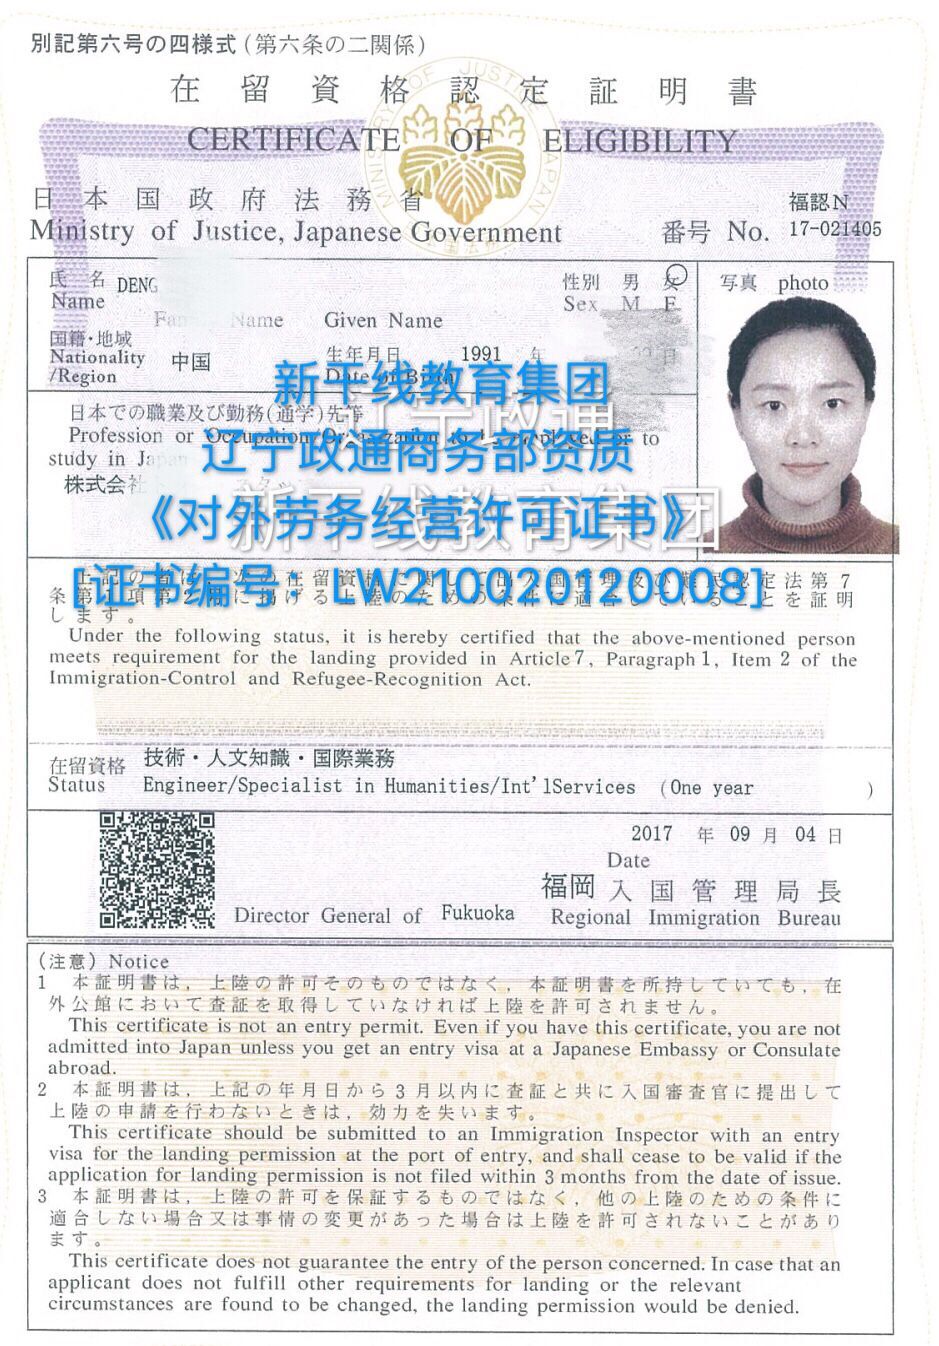 別記第六号の四様式(第六条の二関係)
在留資格認定証明書
CERTIFICATE OF ELIGIBILITY
日本国政府法務省
Ministry of Justice, Japanese Government
福認N
番号 No. 17-021405
氏名 DENG
Name
Family Name Given Name
性別 男 女
Sex M F
写真 photo
国籍・地域
Nationality 中国
/Region
生年月日 1991 年 日
Date of Birth
新干线教育集团
日本での職業及び勤務(通学)先等
辽宁政通
Profession or Occupation to
study in Japan
辽宁政通商务部资质
株式会社
新干线教育集团
《对外劳务经营许可证书》
[证书编号：LW210020120008]
条 第7
します。
Under the following status, it is hereby certified that the above-mentioned person
meets requirement for the landing provided in Article 7, Paragraph 1, Item 2 of the
Immigration-Control and Refugee-Recognition Act.
在留資格 技術・人文知識・国際業務
Status Engineer/Specialist in Humanities/Int'lServices (One year )
2017 年 09 月 04 日
Date
福岡 入国管理局長
Director General of Fukuoka Regional Immigration Bureau
(注意) Notice
1 本証明書は、上陸の許可そのものではなく、本証明書を所持していても、在
外公館において査証を取得していなければ上陸を許可されません。
This certificate is not an entry permit. Even if you have this certificate, you are not
admitted into Japan unless you get an entry visa at a Japanese Embassy or Consulate
abroad.
2 本証明書は、上記の年月日から3月以内に査証と共に入国審査官に提出して
上陸の申請を行わないときは、効力を失います。
This certificate should be submitted to an Immigration Inspector with an entry
visa for the landing permission at the port of entry, and shall cease to be valid if the
application for landing permission is not filed within 3 months from the date of issue.
3 本証明書は、上陸の許可を保証するものではなく、他の上陸のための条件に
適合しない場合又は事情の変更があった場合は上陸を許可されないことがあり
ます。
This certificate does not guarantee the entry of the person concerned. In case that an
applicant does not fulfill other requirements for landing or the relevant
circumstances are found to be changed, the landing permission would be denied.